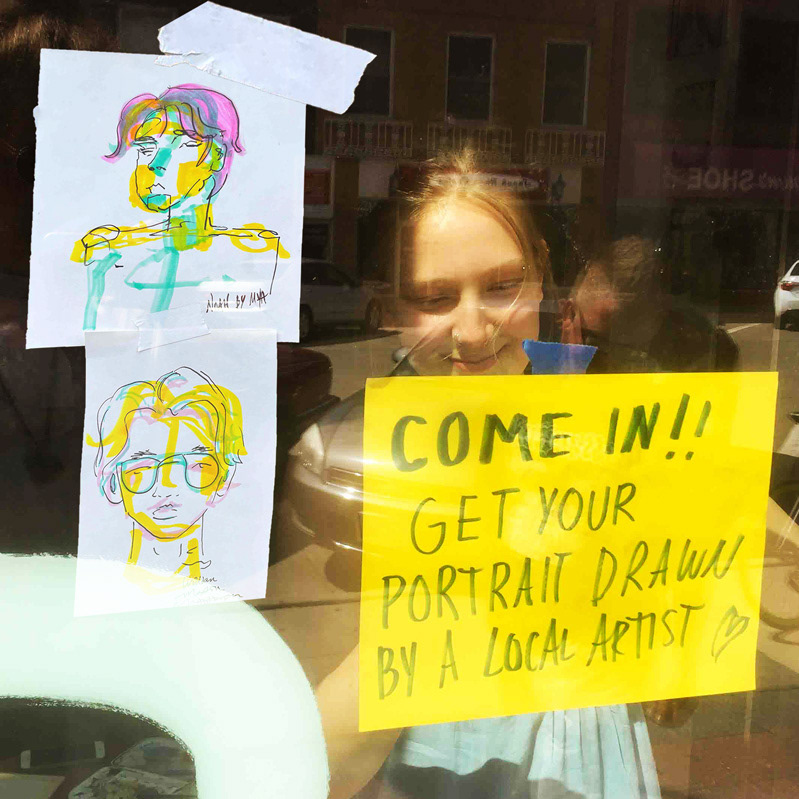 NOAH BY MYA
COME IN!!
GET YOUR
PORTRAIT DRAWN
BY A LOCAL ARTIST
SHOE